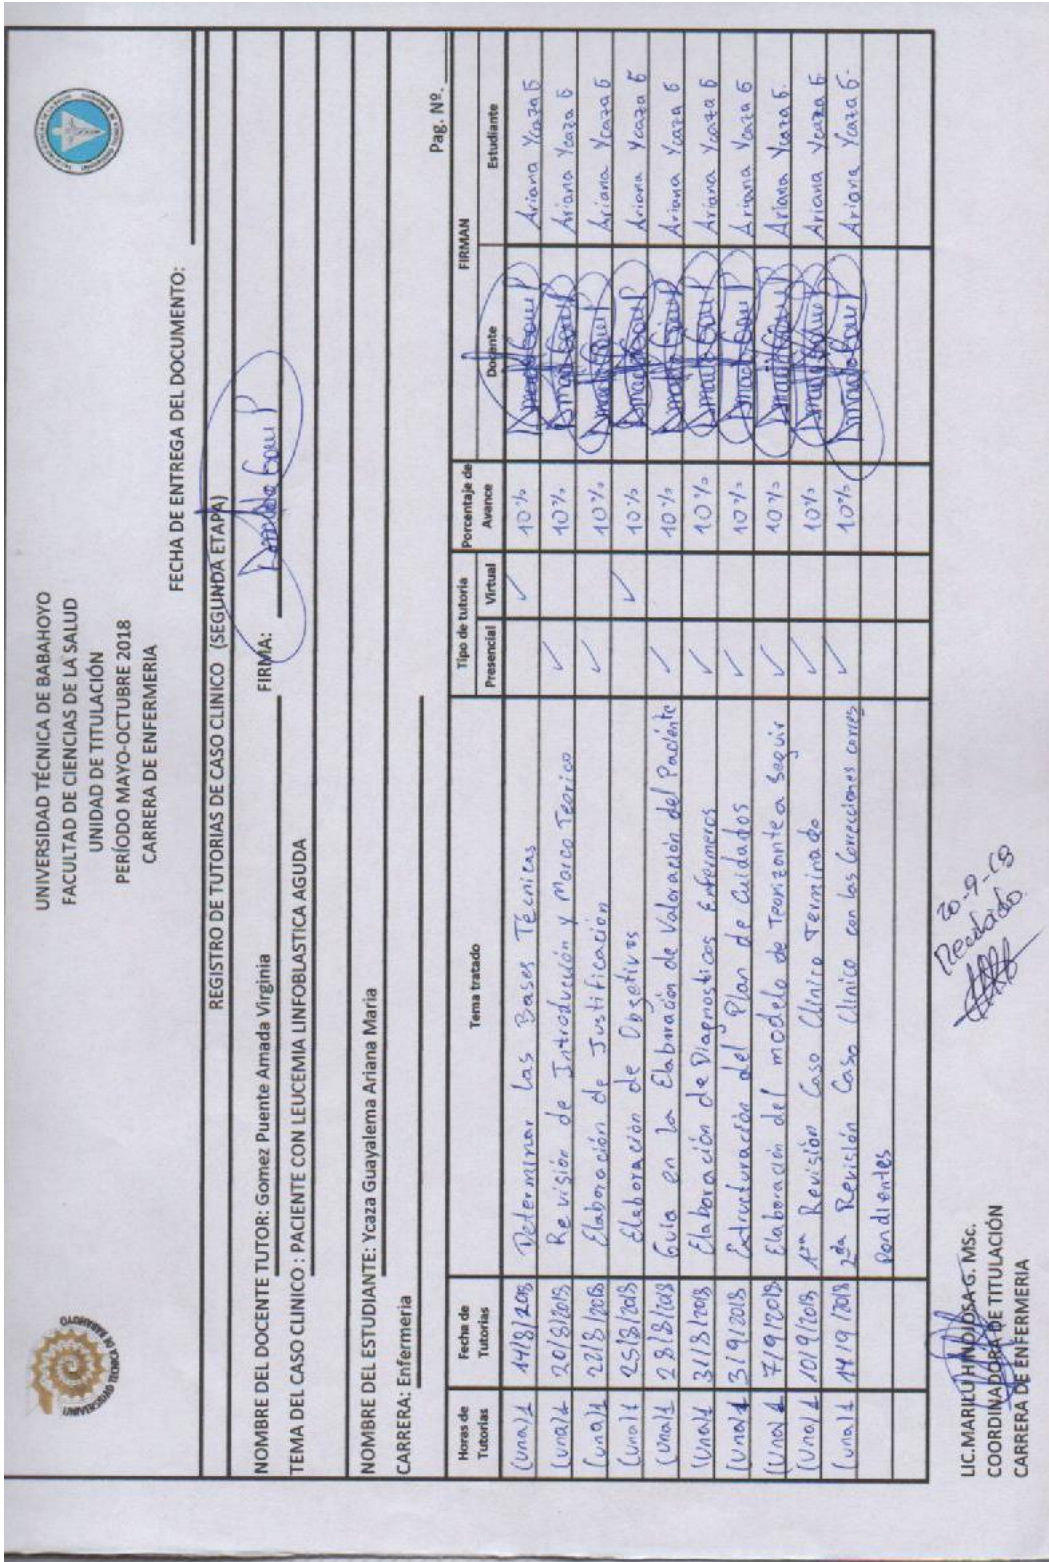 UNIVERSIDAD TÉCNICA DE BABAHOYO
FACULTAD DE CIENCIAS DE LA SALUD
UNIDAD DE TITULACIÓN
PERÍODO MAYO-OCTUBRE 2018
CARRERA DE ENFERMERIA
FECHA DE ENTREGA DEL DOCUMENTO:
REGISTRO DE TUTORIAS DE CASO CLINICO (SEGUNDA ETAPA)
NOMBRE DEL DOCENTE TUTOR: Gomez Puente Amada Virginia FIRMA:
TEMA DEL CASO CLINICO : PACIENTE CON LEUCEMIA LINFOBLASTICA AGUDA
NOMBRE DEL ESTUDIANTE: Ycaza Guayalema Ariana Maria
CARRERA: Enfermeria
Pag. Nº.
Horas de Tutorias Fecha de Tutorias Tema tratado Tipo de tutoria Porcentaje de Avance FIRMAN
Presencial Virtual Docente Estudiante
(una) 1 14/8/2018 Determinar las Bases Técnicas ✓ 10% Ariana Ycaza G
(una) 1 20/8/2018 Revisión de Introducción y Marco Teorico ✓ 10% Ariana Ycaza G
(una) 1 22/8/2018 Elaboración de Justificación ✓ 10% Ariana Ycaza G
(una) 1 25/8/2018 Elaboración de Obgetivos ✓ 10% Ariana Ycaza G
(una) 1 28/8/2018 Guia en la Elaboración de Valoración del Paciente ✓ 10% Ariana Ycaza G
(una) 1 31/8/2018 Elaboración de Diagnosticos Enfermeros ✓ 10% Ariana Ycaza G
(una) 1 3/9/2018 Estructuración del Plan de Cuidados ✓ 10% Ariana Ycaza G
(una) 1 7/9/2018 Elaboración del modelo de Teorizante a Seguir ✓ 10% Ariana Ycaza G.
(una) 1 10/9/2018 1ra Revisión Caso Clinico Terminado ✓ 10% Ariana Ycaza G.
(una) 1 14/9/2018 2da Revisión Caso Clinico con las Correcciones corres ✓ 10% Ariana Ycaza G.
pondientes
20-9-18
Recibido.
LIC.MARILU HINOJOSA G. MSc.
COORDINADORA DE TITULACIÓN
CARRERA DE ENFERMERIA